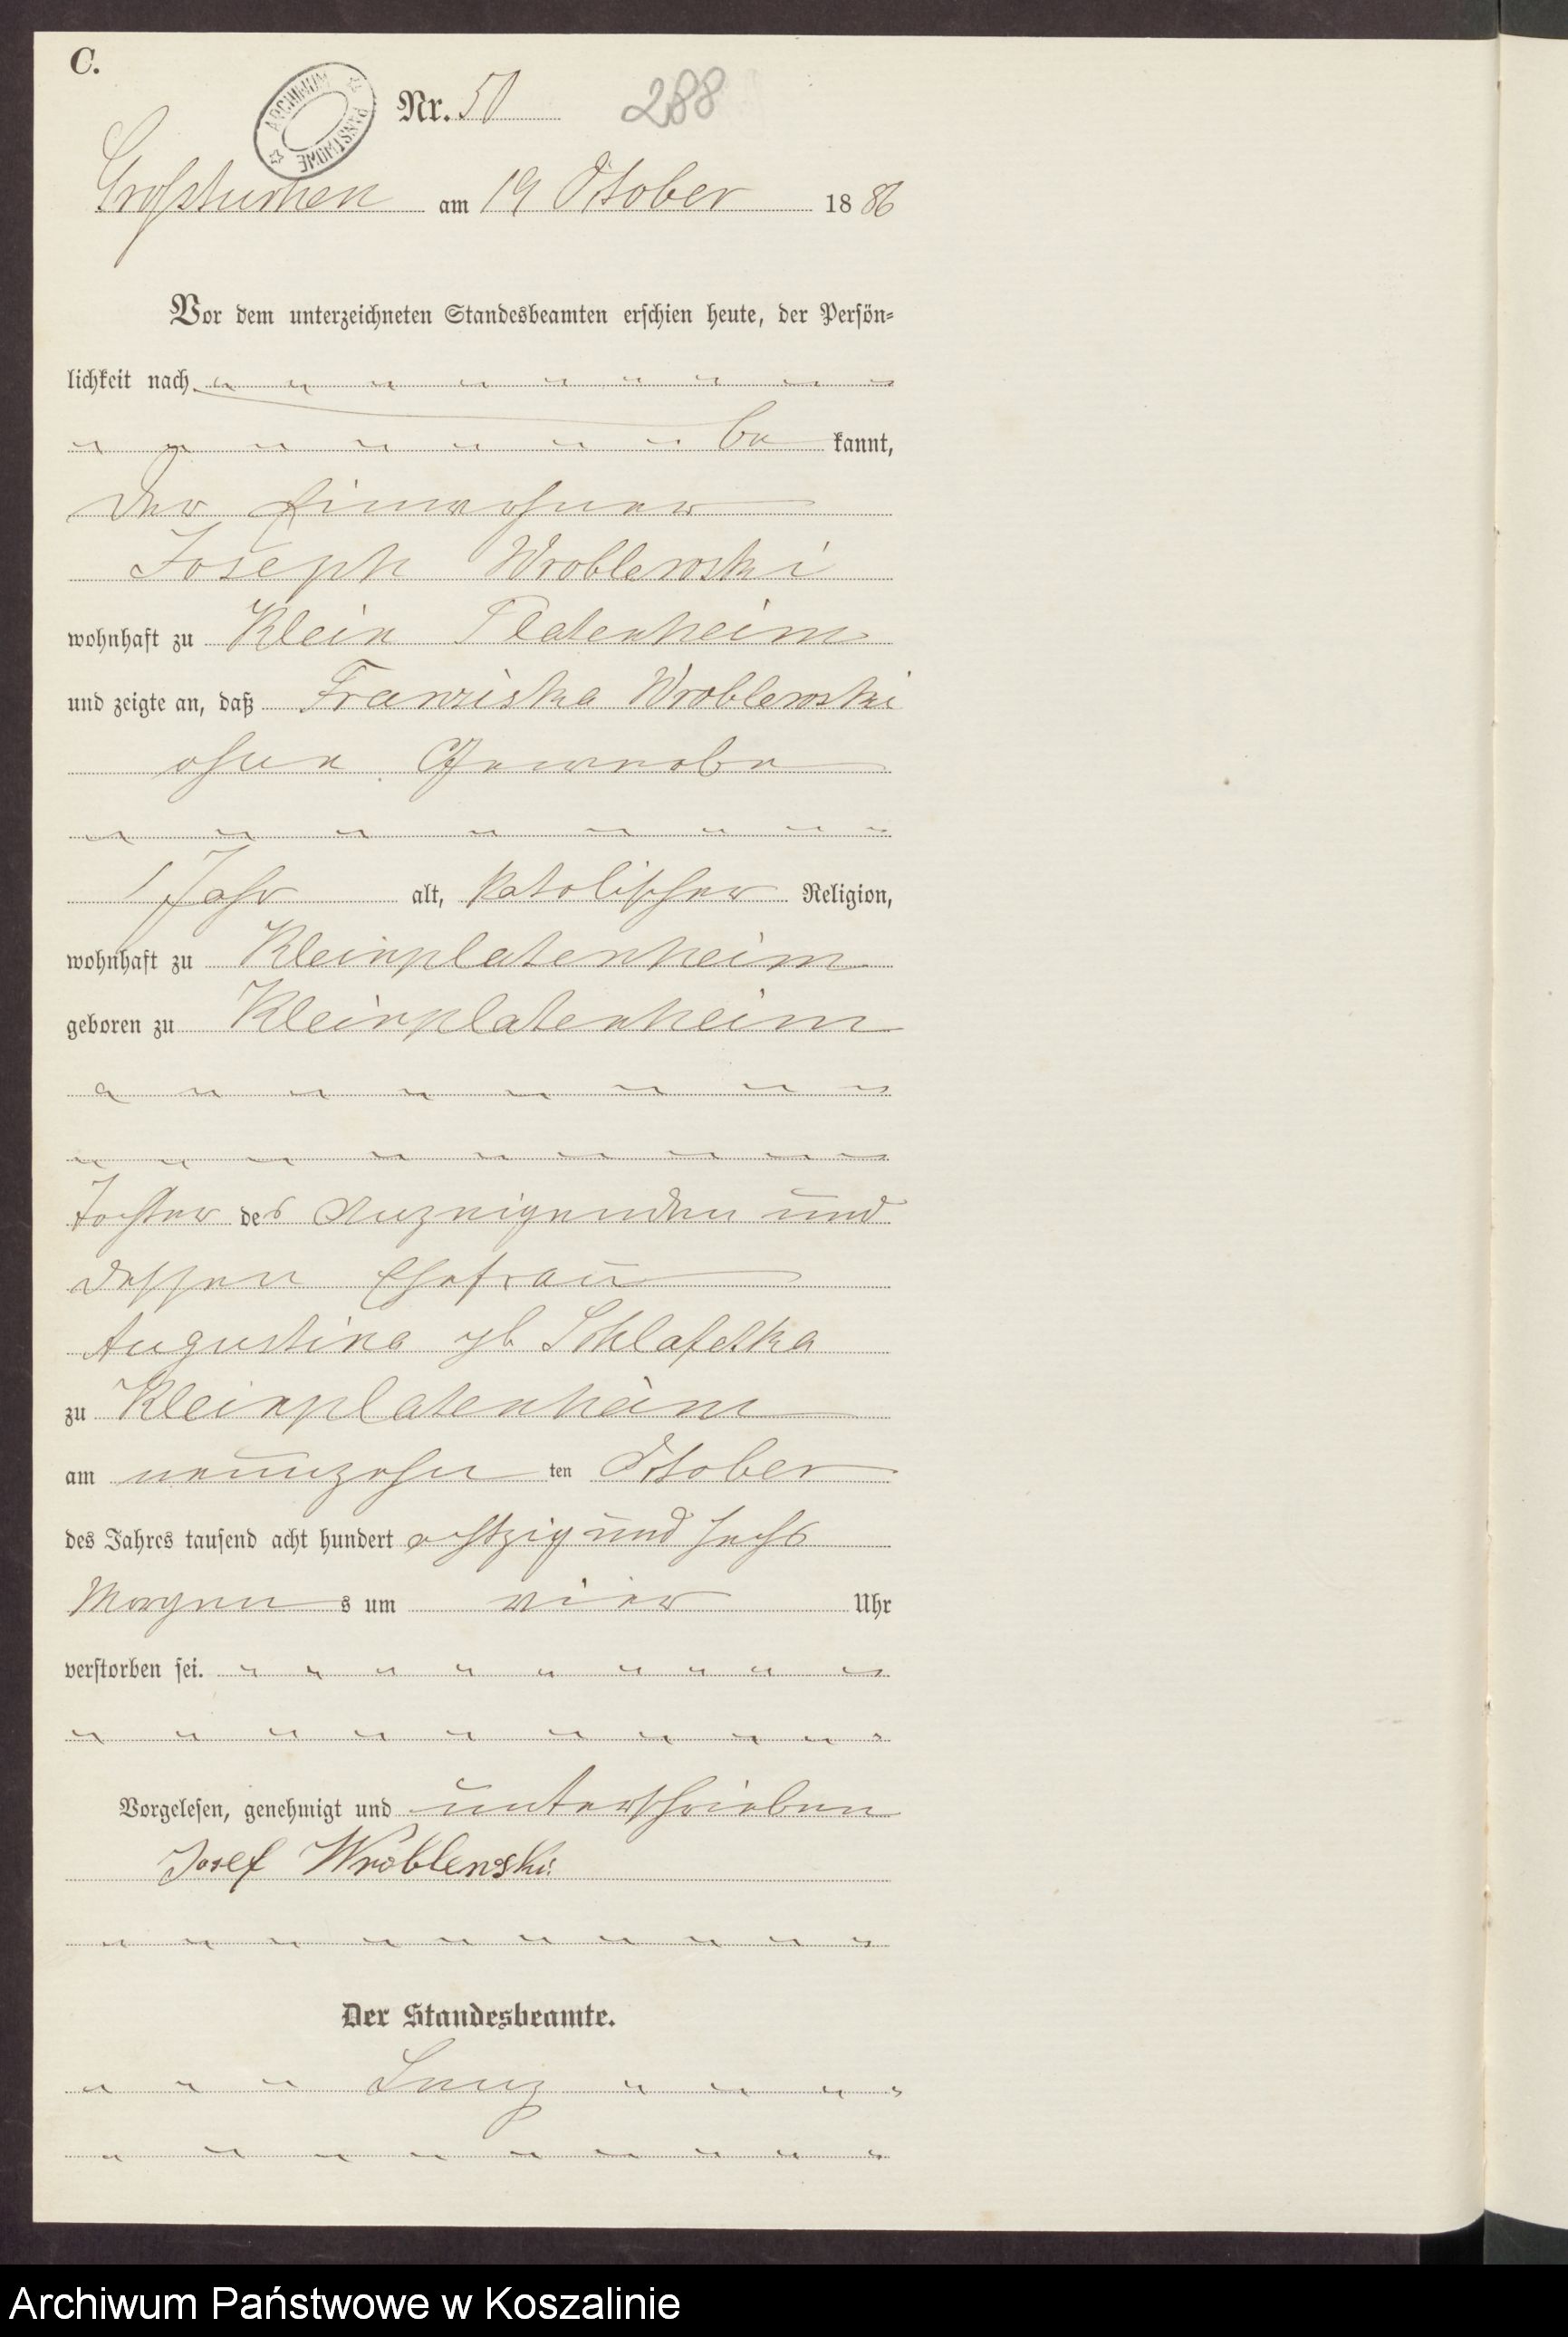 C.
ARCHIWUM PAŃSTWOWE
Nr. 50 288
Großtuchen am 19 October 1886
Vor dem unterzeichneten Standesbeamten erschien heute, der Persön-
lichkeit nach
be kannt,
der Einwohner
Joseph Wroblewski
wohnhaft zu Klein Platenheim
und zeigte an, daß Franziska Wroblewski
ohne Gewerbe
1 Jahr alt, katolischer Religion,
wohnhaft zu Kleinplatenheim
geboren zu Kleinplatenheim
Tochter des Anzeigenden und
dessen Ehefrau
Augustina gb
zu Kleinplatenheim
am neunzehn ten October
des Jahres tausend acht hundert achtzig und sechs
Morgen s um vier Uhr
verstorben sei.
Vorgelesen, genehmigt und unterschrieben
Josef Wróblewski
Der Standesbeamte.
Archiwum Państwowe w Koszalinie